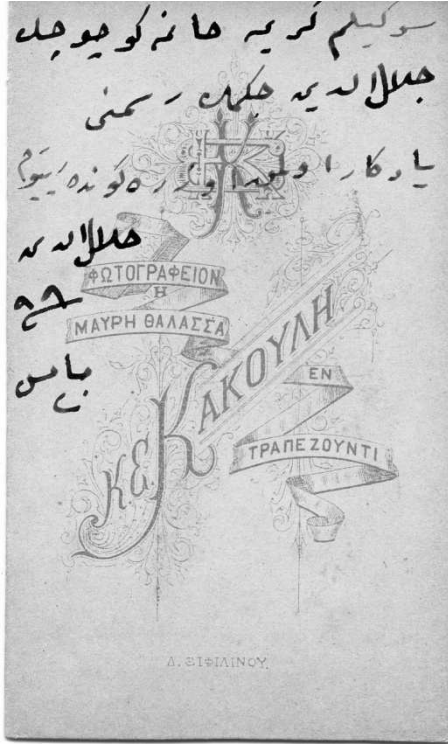 سوكيلم كريمه خانمه كوچوجك
جلال الدين جكك رسمنى
يادكار اولمق اوزره كوندرييورم
جلال الدين
ΦΩΤΟΓΡΑΦΕΙΟΝ
Η
ΜΑΥΡΗ ΘΑΛΑΣΣΑ
Κ Ε ΚΑΚΟΥΛΗ
ΕΝ
ΤΡΑΠΕΖΟΥΝΤΙ